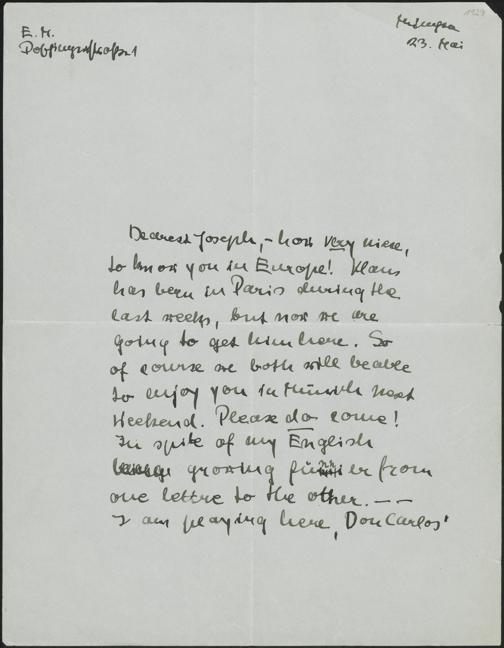 1929
E. M.
23. Mai
Dearest Joseph, – how very nice,
to know you in Europe! Klaus
has been in Paris during the
last weeks, but now we are
going to get him here. So
of course we both will be able
to enjoy you in Münich next
Weekend. Please do come!
In spite of my English
growing funnier from
one lettre to the other. – –
I am playing here, Don Carlos'